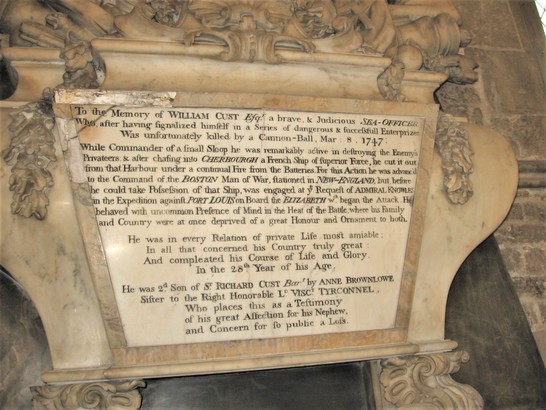 To the Memory of WILLIAM CUST Esqr. a brave, & Judicious SEA-OFFICER
Who, after having ſignalized himſelf in a Series of dangerous & ſucceſsfull Enterprizes
Was unfortunately killed by a Cannon-Ball, Mar: 8. 1747.
While Commander of a ſmall Sloop he was remarkably active in deſtroying the Enemy's
Privateers, & after chaſing into CHERBOURGH a French Ship of ſuperior Force, he cut it out
from that Harbour under a continual Fire from the Batteries. For this Action he was advanc'd
to the Command of the BOSTON Man of War, ſtationed in NEW-ENGLAND, but before
he could take Poſseſsion of that Ship, was engaged at ye. Requeſt of ADMIRAL KNOWLES
in the Expedition againſt PORT LOUIS on Board the ELIZABETH wch. began the Attack. He
behaved with uncommon Preſence of Mind in the Heat of the Battle, where his Family
and Country were at once deprived of a great Honour and Ornament to both.
He was in every Relation of private Life most amiable;
In all that concerned his Country truly great:
And compleated his Courſe of Life and Glory
In the 28th Year of his Age.
He was 2d. Son of Sr. RICHARD CUST Bart. by ANNE BROWNLOWE
Sister to the Right Honorable Ld. VISCt. TYRCONNEL,
Who places this as a Teſtimony
of his great Affection for his Nephew,
and Concern for ſo public a Loſs.